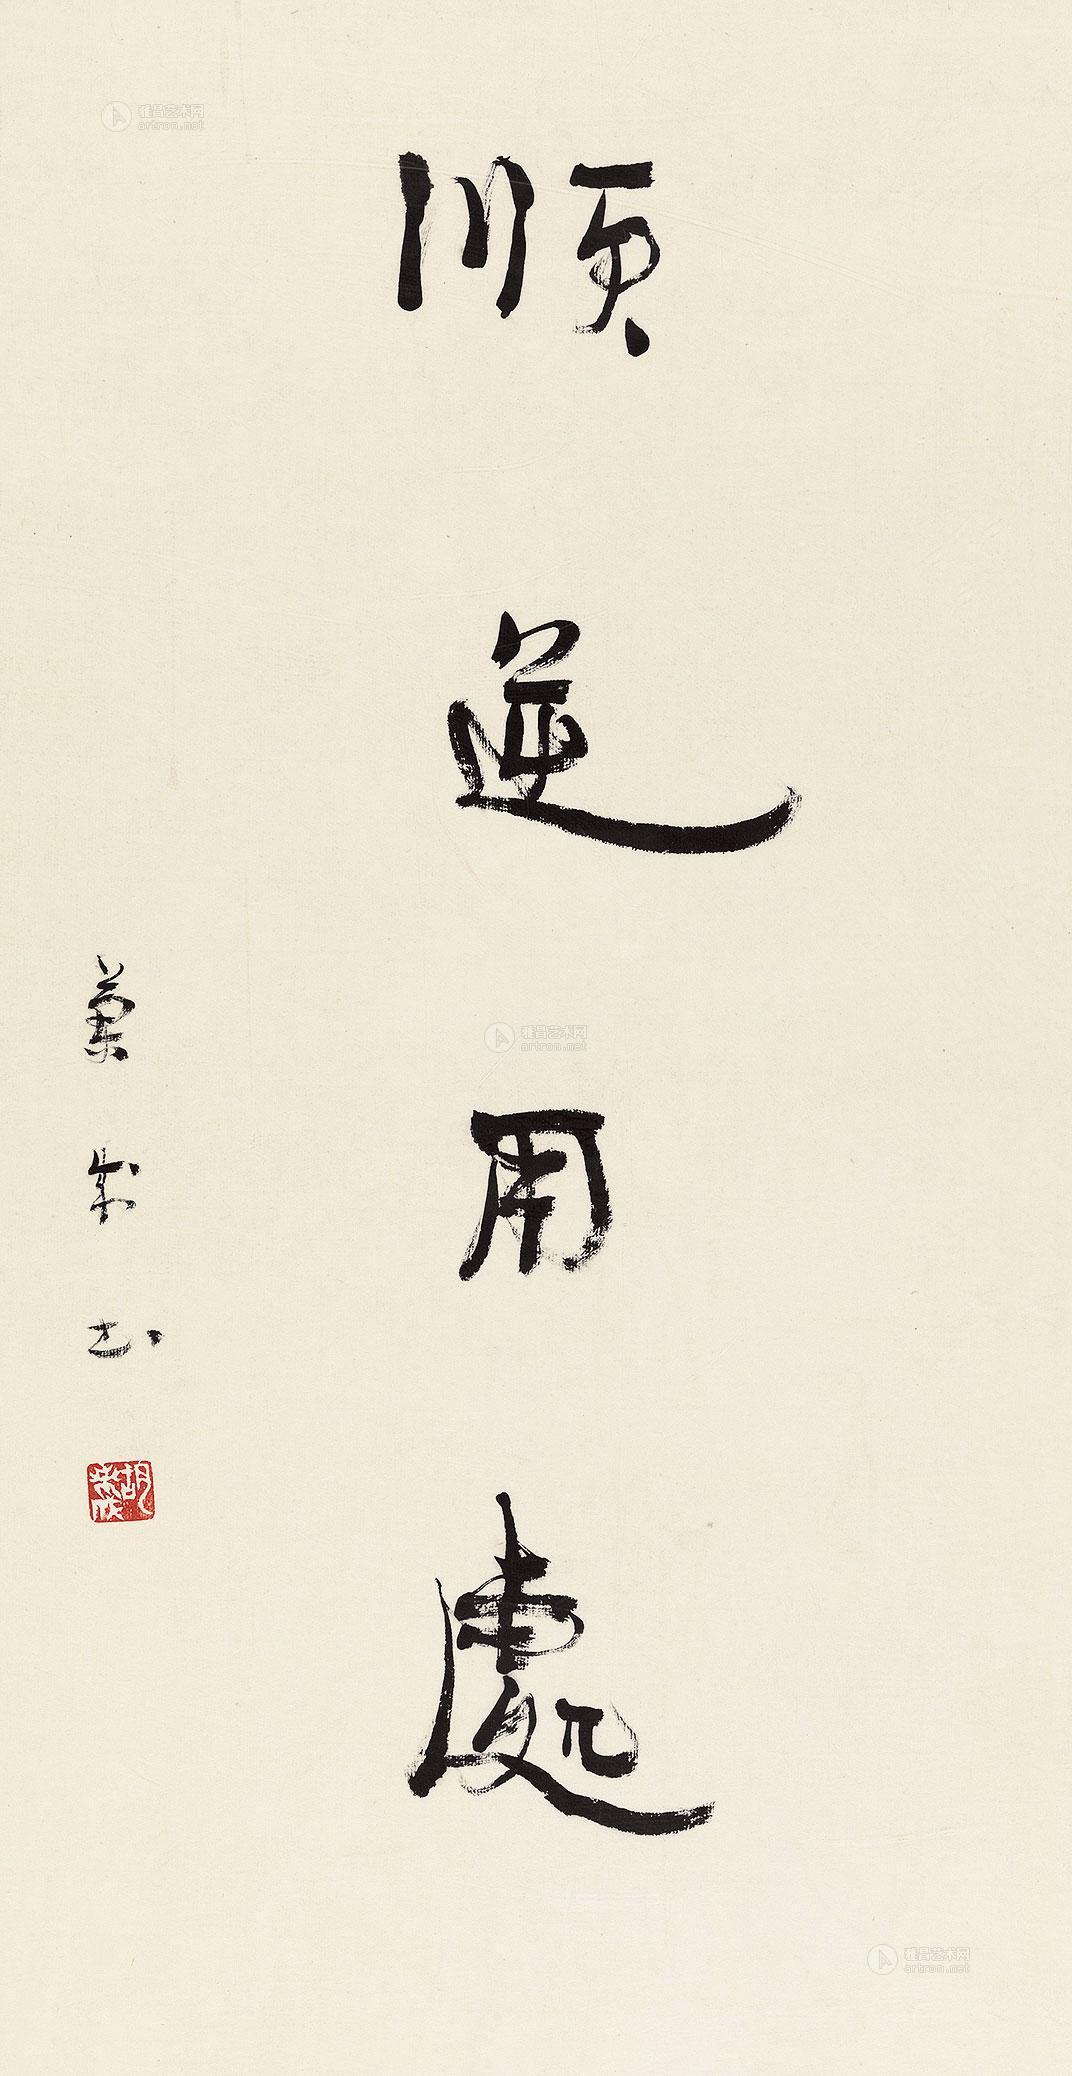 雅昌艺术网
artron.net
順
逆
用
處
雅昌艺术网
artron.net
雅昌艺术网
artron.net